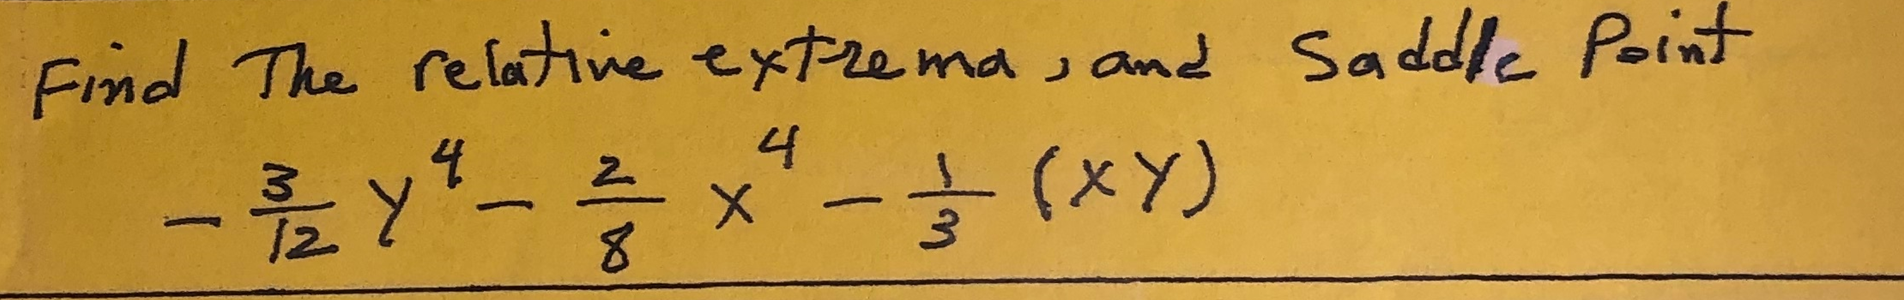 Find The relative extrema, and Saddle Point
- 3/12 y⁴ - 2/8 x⁴ - 1/3 (xy)